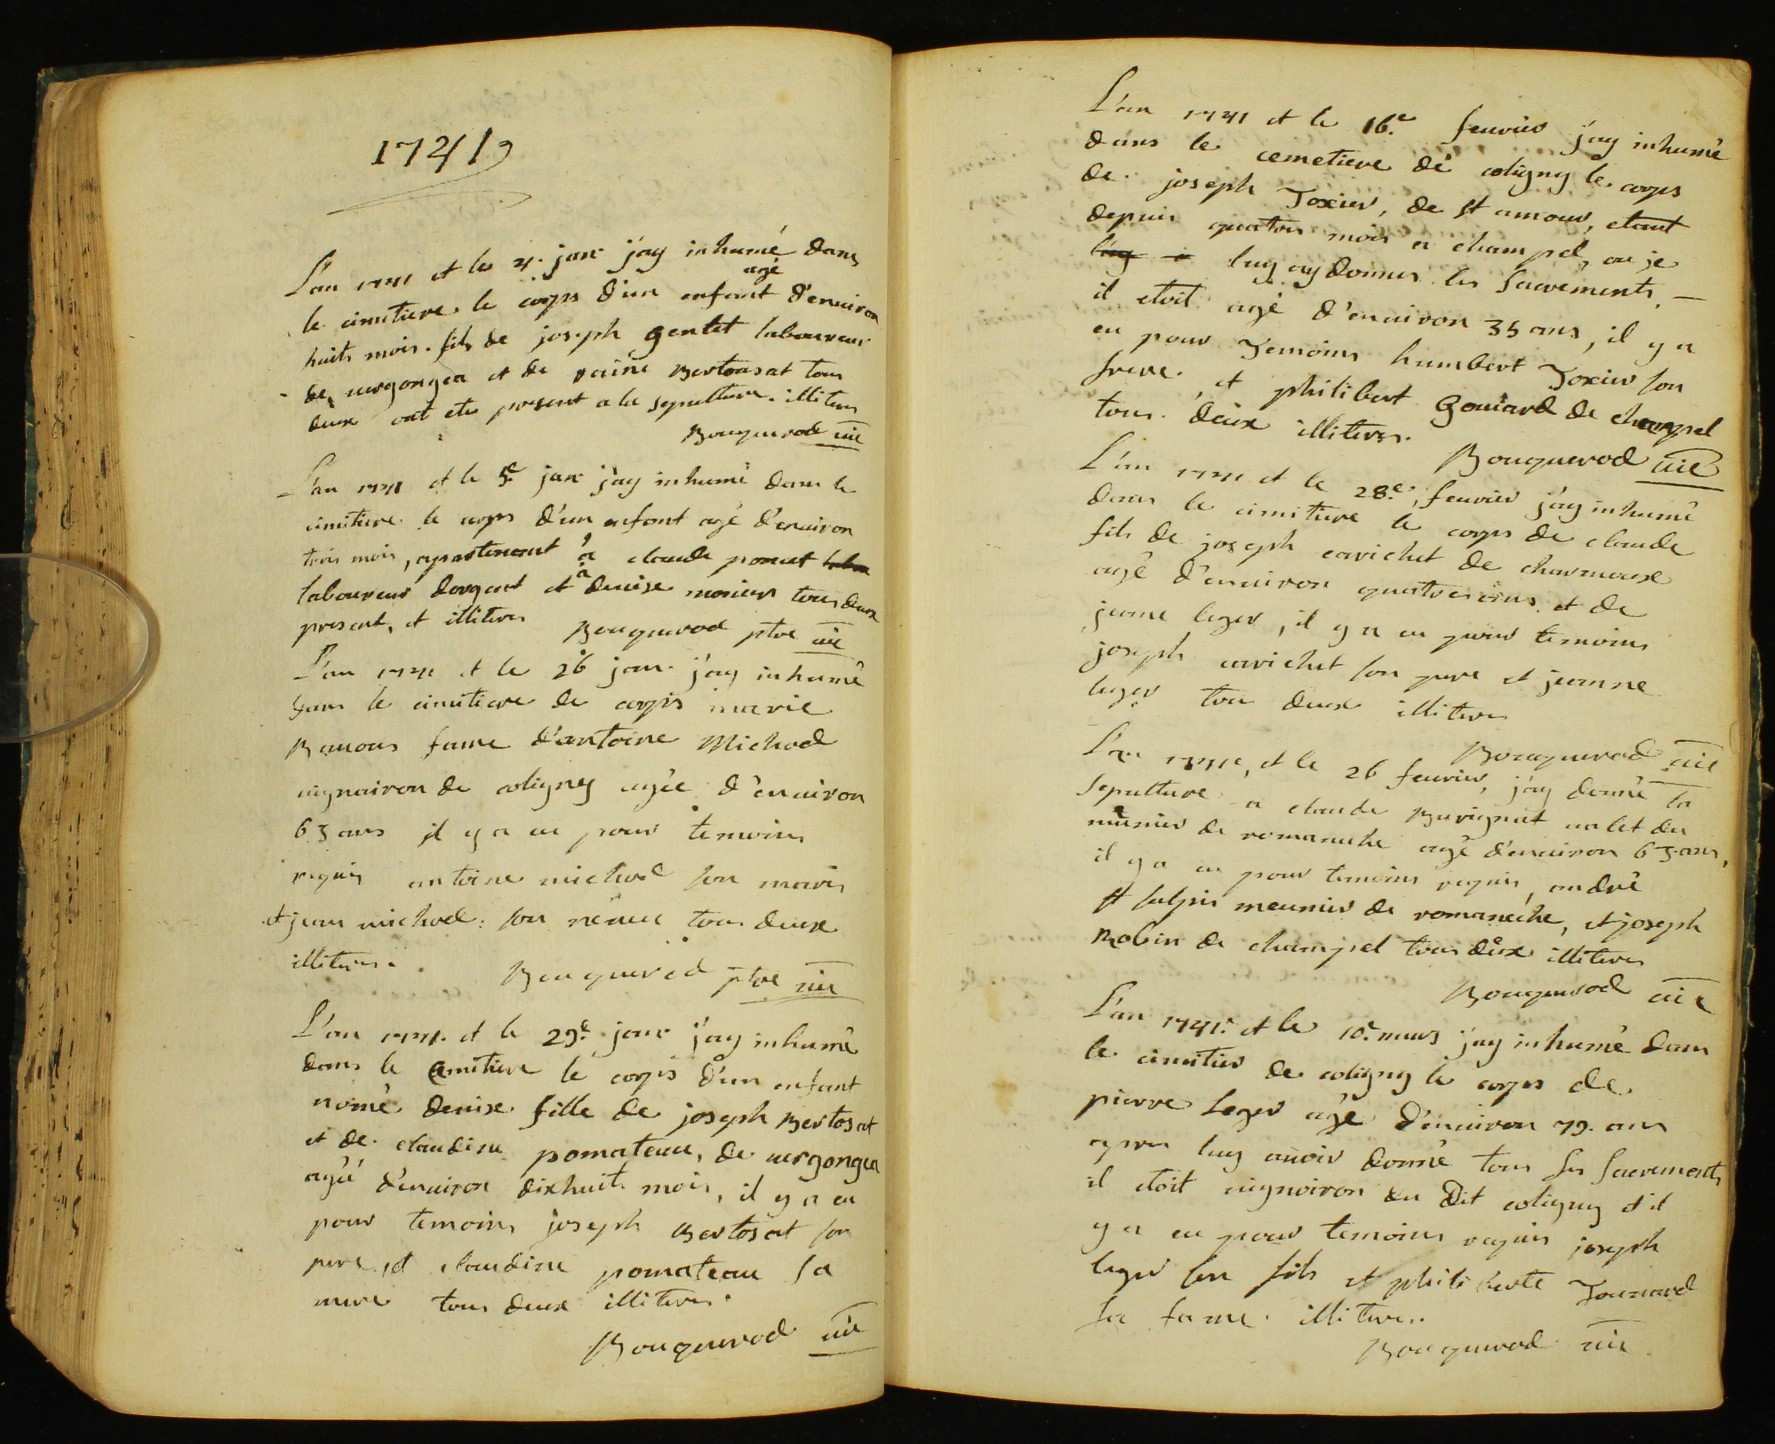 1741
L'an 1741 et le 4. janr j'ay inhumé dans
le cimitiere le corps d'un enfant agé d'enuiron
huits mois. fils de joseph gentet laboureur
de uergongea et de reine Bertousat tous
deux ont etes present a la sepulture. illiteres
Bouquerod uic
L'an 1741 et le 5e janr j'ay inhumé dans le
cimitiere le corps d'un enfant agé d'enuiron
trois mois, apartenant a claude poncet
laboureur dorgent et a denise monier tous deux
present, et illiteres Bouquerod ptre uic
L'an 1741 et le 26 janr j'ay inhumé
dans le cimitiere le corps marie
Banons fame d'antoine Michod
uignairon de coligny agée d'enuiron
63 ans il y a eu pour temoins
requis antoine michod son maris
et jean michod son néueu tous deux
illiteres. Bouquerod ptre uic
L'an 1741. et le 29e janr j'ay inhumé
dans le cimitiere le corps d'un enfant
nomé denise fille de joseph Bertosat
et de claudine pomateau, de uergongea
agéé d'enuiron dixhuit mois, il y a eu
pour temoins joseph Bertosat son
pere, et claudine pomateau sa
mere tous deux illiteres.
Bouquerod uic
L'an 1741 et le 16.e feurier j'ay inhumé
dans le cemetiere de coligny le corps
de joseph Toxier, de st amour, etant
depuis quatres mois a champel, ou je
luy ay donner les sacrements,
il etoit agé d'enuiron 35 ans, il y a
eu pour Temoins humbert Toxier son
frere. et philibert Gouiard de champel
tous deux illiteres.
Bouquerod uic
L'an 1741 et le 28.e feurier j'ay inhumé
dans le cimitiere le corps de claude
fils de joseph carichet de charmoux
agé d'enuiron quatres ans et de
jeanne leger, il y a eu pour temoins
joseph carichet son pere et jeanne
leger tous deux illiteres
Bouquerod uic
L'an 1741, et le 26 feurier, j'ay donné la
sepulture a claude Burignat ualet du
munier de romaneche agé d'enuiron 63 ans,
il y a eu pour temoins requis, andré
st sulpis meunier de romaneche, et joseph
Robin de champel tous deux illiteres
Bouquerod uic
L'an 1741. et le 10.e mars j'ay inhumé dans
le cimitier de coligny le corps de
pierre Leger agé d'enuiron 79. ans
apres luy auoir donné tous ses sacrements
il etoit uignoiron du Dit coligny et il
y a eu pour temoins requis joseph
leger son fils et philiberte Jouuard
sa fame. illiteres.
Bouquerod uic